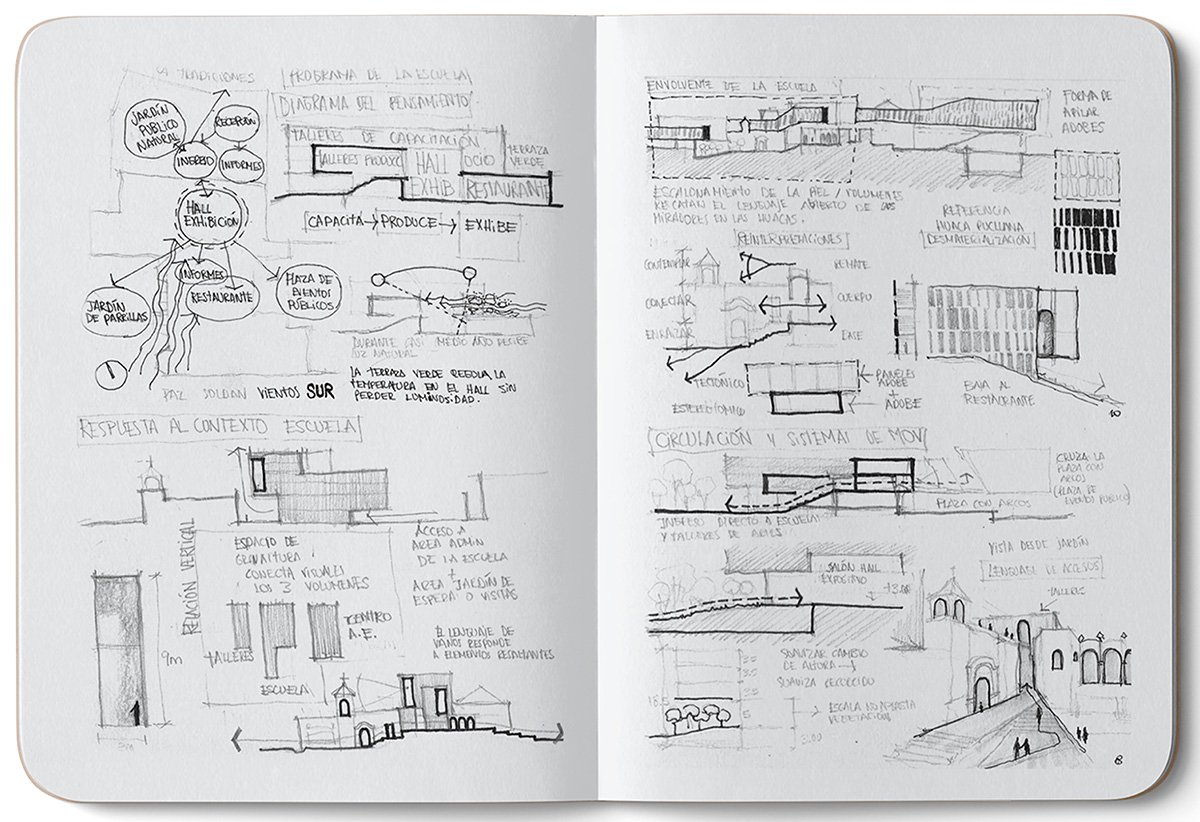 TRADICIONES
PROGRAMA DE LA ESCUELA
DIAGRAMA DEL PENSAMIENTO
JARDÍN
PÚBLICO
NATURAL
RECEPCIÓN
INGRESO
INFORMES
HALL
EXHIBICIÓN
INFORMES
RESTAURANTE
PLAZA DE
EVENTOS
PÚBLICOS
JARDÍN
DE PARRILLAS
VIENTOS SUR
TALLERES DE CAPACITACIÓN
TALLERES PRODUCC
HALL
EXHIB
OCIO
RESTAURANTE
TERRAZA
VERDE
CAPACITA → PRODUCE → EXHIBE
DURANTE CASI MEDIO AÑO RECIBE
LUZ NATURAL
LA TERRAZA VERDE REGULA LA
TEMPERATURA EN EL HALL SIN
PERDER LUMINOSIDAD.
RESPUESTA AL CONTEXTO ESCUELA
RELACIÓN VERTICAL
9m
3m
ESPACIO DE
CONECTA VISUAL
LOS 3 VOLUMENES
TALLERES
CENTRO
A.E.
ESCUELA
ACCESO A
AREA ADMIN
DE LA ESCUELA
+
AREA JARDÍN DE
ESPERA O VISITAS
EL LENGUAJE DE
VANOS RESPONDE
A ELEMENTOS RESALTANTES
ENVOLVENTE DE LA ESCUELA
FORMA DE
APILAR
ADOBES
ESCALONAMIENTO DE LA PIEL / VOLUMENES
RESCATAN EL LENGUAJE ABIERTO DE LOS
MIRADORES EN LAS HUACAS.
REFERENCIA
HUACA PUCLLANA
DESMATERIALIZACIÓN
REINTERPRETACIONES
CONTEMPLAR
REMATE
CONECTAR
CUERPO
ENRAIZAR
BASE
TECTÓNICO
ESTEREOTÓMICO
PANELES
ADOBE
+
ADOBE
BAJA AL
RESTAURANTE
10
CIRCULACIÓN Y SISTEMAS DE MOV
CRUZA LA
PLAZA CON
ARCOS
(PLAZA DE
EVENTO PÚBLICO)
PLAZA CON ARCOS
INGRESO DIRECTO A ESCUELA
Y TALLERES DE ARTES
SALÓN HALL
EXPOSITIVO
+3.00
VISTA DESDE JARDÍN
LENGUAJE DE ACCESOS
TALLERES
SUAVIZAR CAMBIO
DE ALTURA
SUAVIZA RECORRIDO
3.5
3.5
5
ESCALA NO APLASTA
VEGETACIÓN
3.00
8